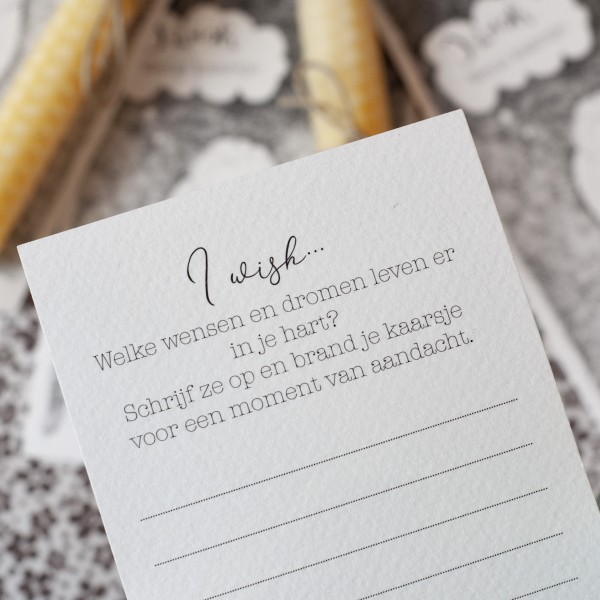 I wish...
Welke wensen en dromen leven er
in je hart?
Schrijf ze op en brand je kaarsje
voor een moment van aandacht.